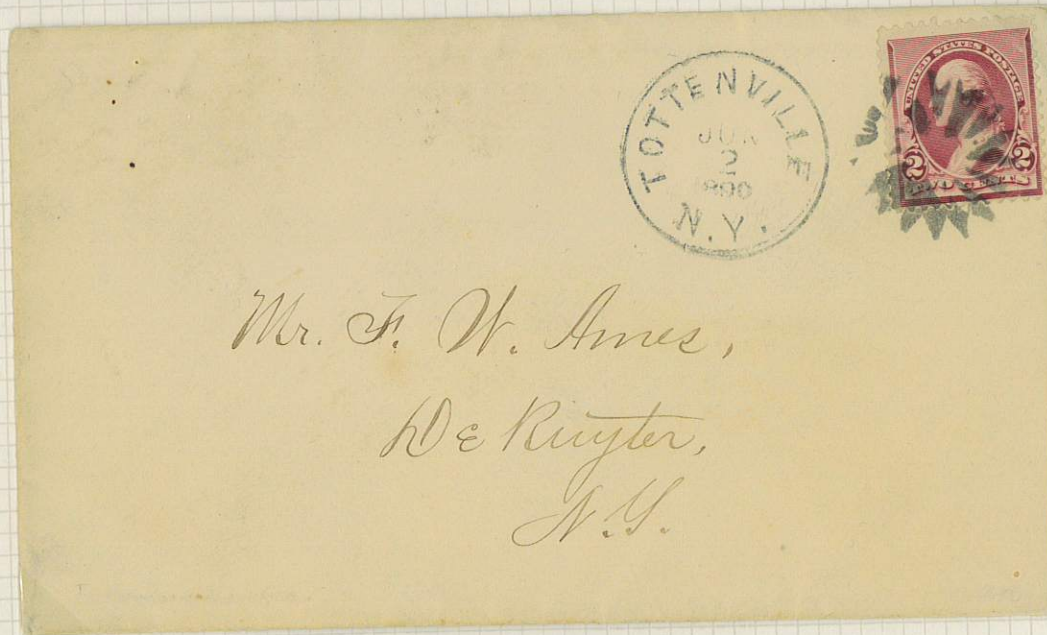 TOTTENVILLE
JUN
2
1890
N.Y.
UNITED STATES POSTAGE
2 2
TWO CENTS
Mr. F. W. Ames,
De Ruyter,
N.Y.